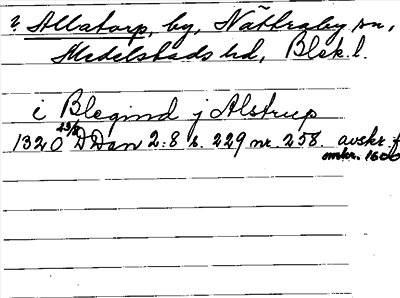 ? Allatorp, by, Nättraby sn,
Medelstads hd, Blek. l.
i Blegind j Alstrup
1320 23/5 DDan 2:8 s. 229 nr. 258. avskr. f
omkr. 1600